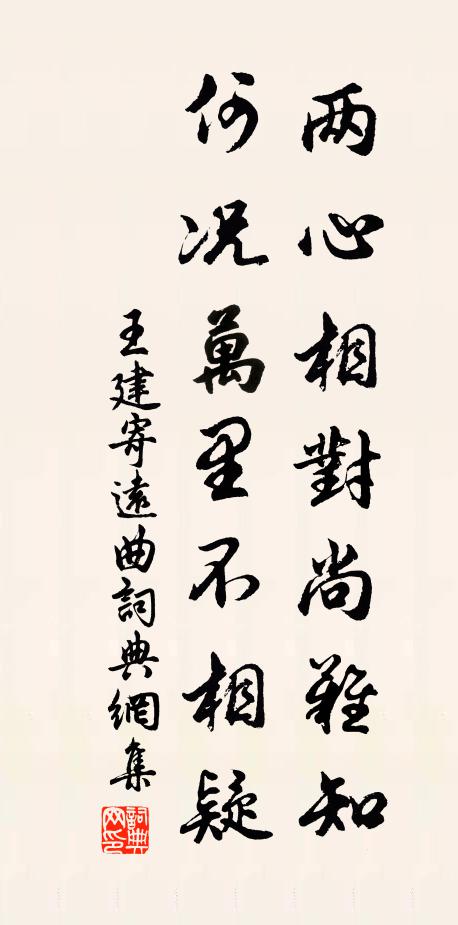 两心相對尚難知
何况萬里不相疑
王建寄遠曲詞典網集
詞典网印